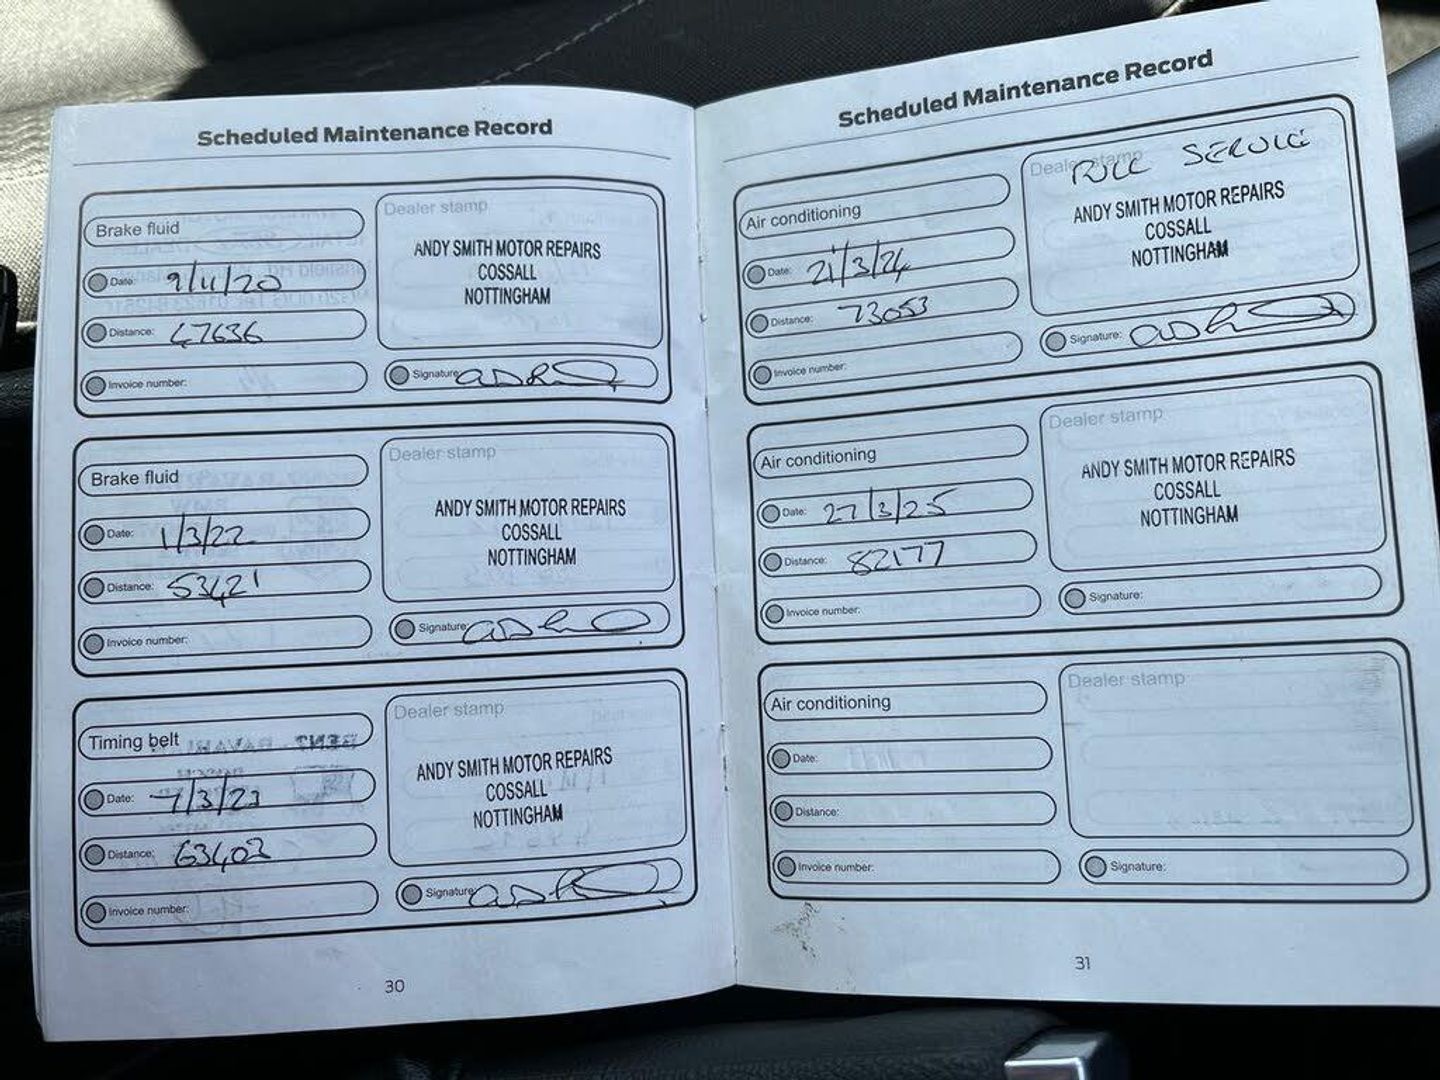 Scheduled Maintenance Record
Brake fluid
Date: 9/11/20
Distance: 47636
Invoice number:
Dealer stamp
ANDY SMITH MOTOR REPAIRS
COSSALL
NOTTINGHAM
Signature:
Brake fluid
Date: 1/3/22
Distance: 53421
Invoice number:
Dealer stamp
ANDY SMITH MOTOR REPAIRS
COSSALL
NOTTINGHAM
Signature:
Timing belt
Date: 7/3/23
Distance: 63402
Invoice number:
Dealer stamp
ANDY SMITH MOTOR REPAIRS
COSSALL
NOTTINGHAM
Signature:
30
Scheduled Maintenance Record
Air conditioning
Date: 21/3/24
Distance: 73053
Invoice number:
Dealer stamp
FULL SERVICE
ANDY SMITH MOTOR REPAIRS
COSSALL
NOTTINGHAM
Signature:
Air conditioning
Date: 27/3/25
Distance: 82177
Invoice number:
Dealer stamp
ANDY SMITH MOTOR REPAIRS
COSSALL
NOTTINGHAM
Signature:
Air conditioning
Date:
Distance:
Invoice number:
Dealer stamp
Signature:
31